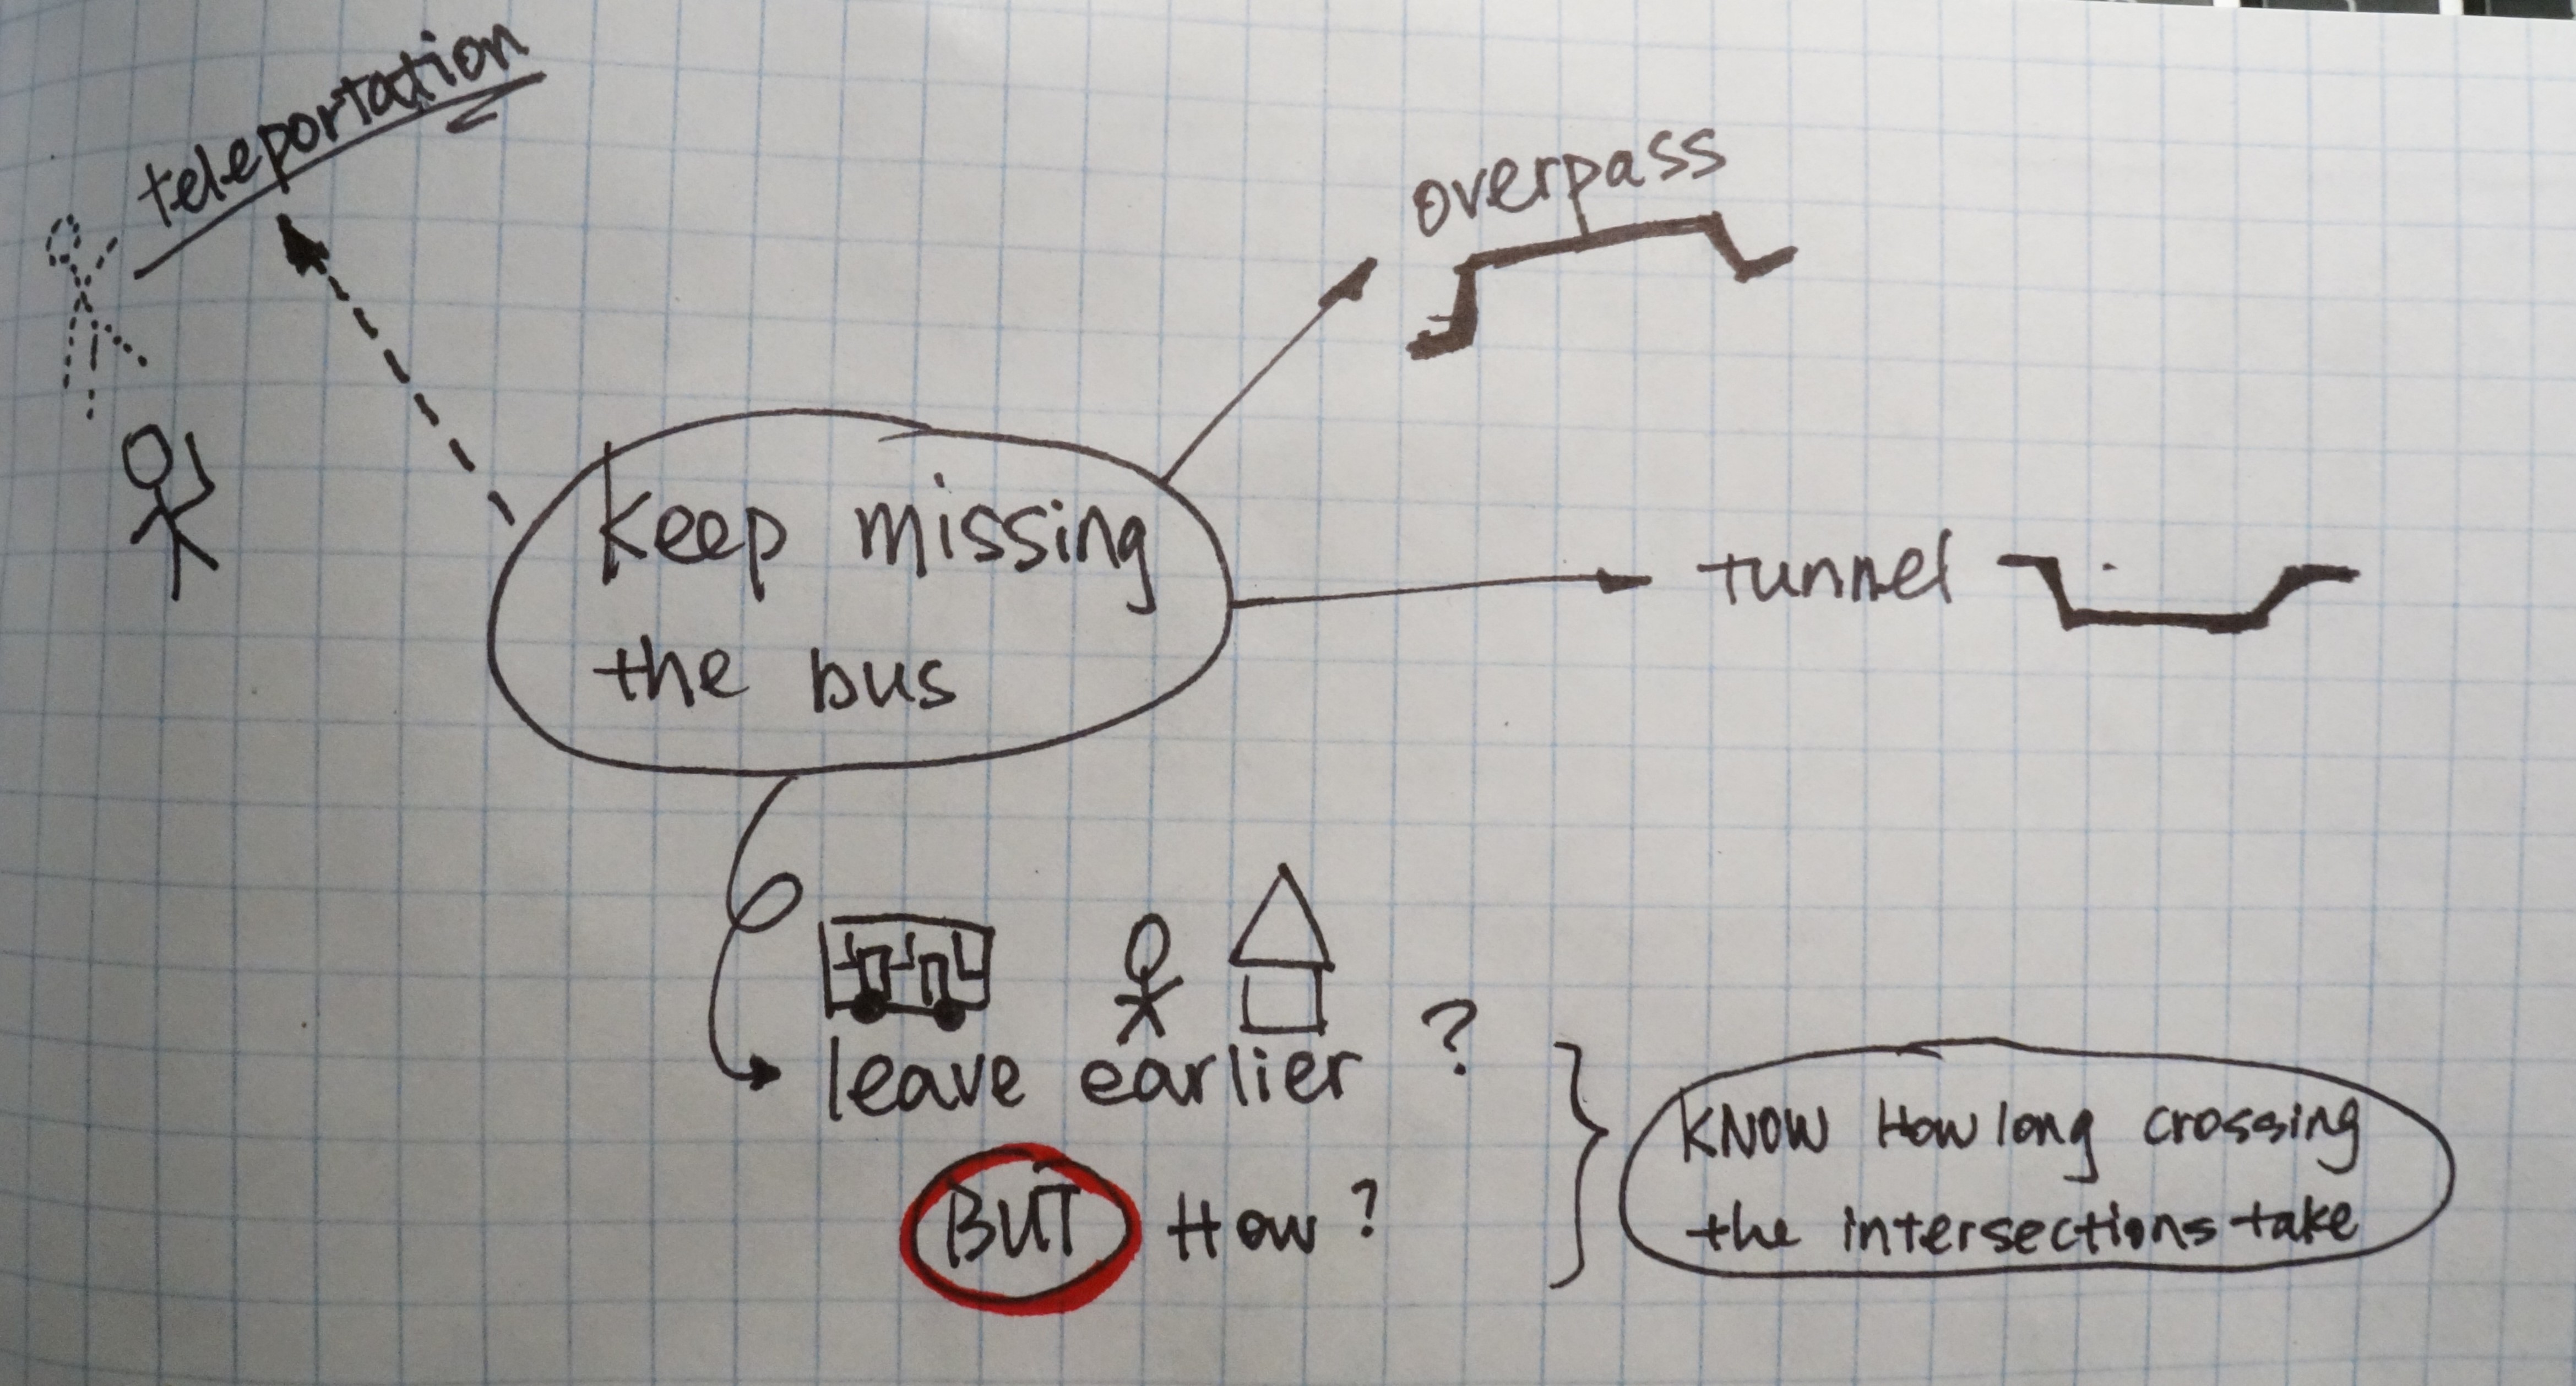 teleportation
overpass
Keep missing
the bus
tunnel
leave earlier ?
BUT How?
KNOW How long crossing
the intersections take